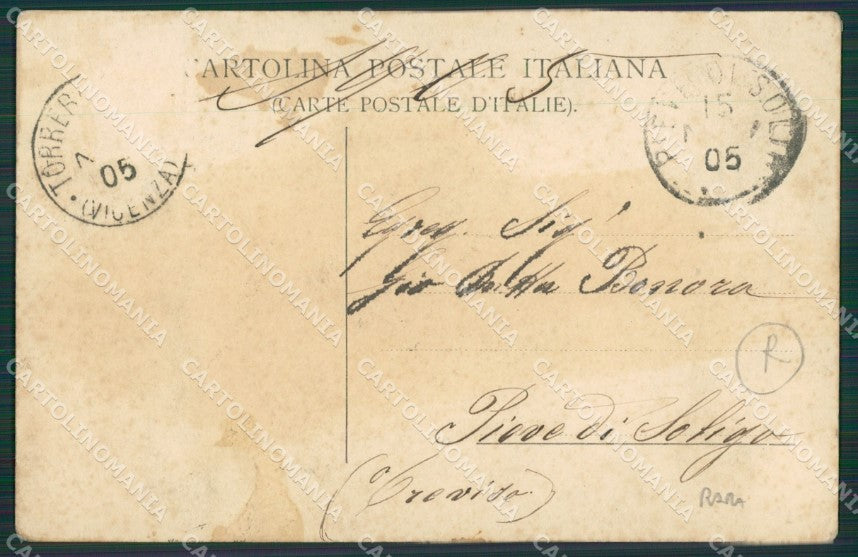 CARTOLINA POSTALE ITALIANA
(CARTE POSTALE D'ITALIE).
TORREB
05
(VICENZA)
PIEVE DI SOLI
15
05
Egreg. Sig.
Gio Batta Bonora
R
Pieve di Soligo
(Treviso)
RARA
CARTOLINOMANIA